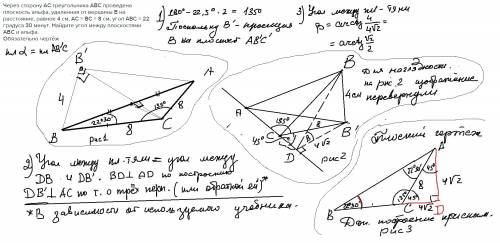 Через сторону АС треугольника АВС проведена
плоскость альфа, удаленная от вершины В на
расстояние, равное 4 см, АС = ВС = 8 см, угол АВС = 22
градуса 30 минут. Найдите угол между плоскостями
АВС и альфа.
Обязательно рис
пл α = пл АВ'С
1) 180° - 22,5°·2 = 135°
Поскольку В' - проекция
В на плоскость АВ'С'
3) Угол между пл-тями
β = arcsin 4/4√2 =
= arcsin √2/2
В'
4
В
22°30'
8
8
135°
С
А
рис1
В
А
135°
45°
С
8
D
4√2
В'
4см
рис2
Для наглядности
на рис. 2 изображение
перевернули
2) Угол между пл-тями = углом между
DB и DB'. BD⊥AD по построению
DB'⊥AC по т. о трёх перп. (или обратной ей)*
*В зависимости от используемого учебника.
Плоский чертёж
А
22°30'
45°
8
4√2
В
22°30'
8
135°
45°
С
4√2
D
Доп. построение красным.
рис3